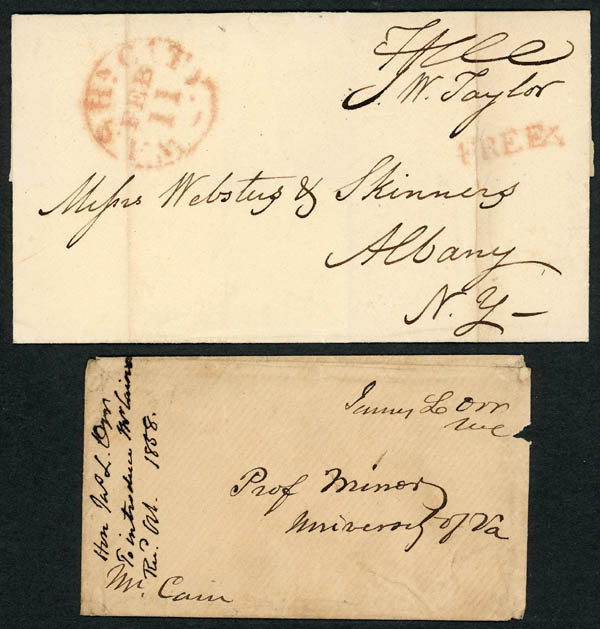 Free
J. W. Taylor
WASHn. CITY
FEB
11
FREE
Messrs Websters & Skinners
Albany
N. Y –
James L Orr
MC
Prof Minor
University of Va
Mr. Cain
Hon Jas L. Orr
To introduce Mr Cain
Recd. Oct. 1858.